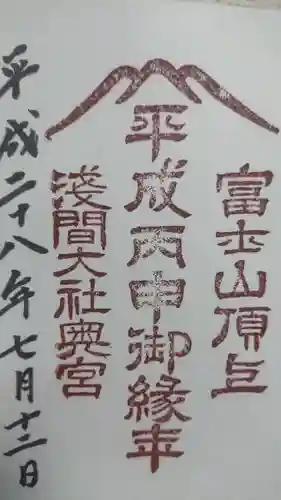 富士山頂上
平成丙申御縁年
浅間大社奥宮
平成二十八年七月十二日